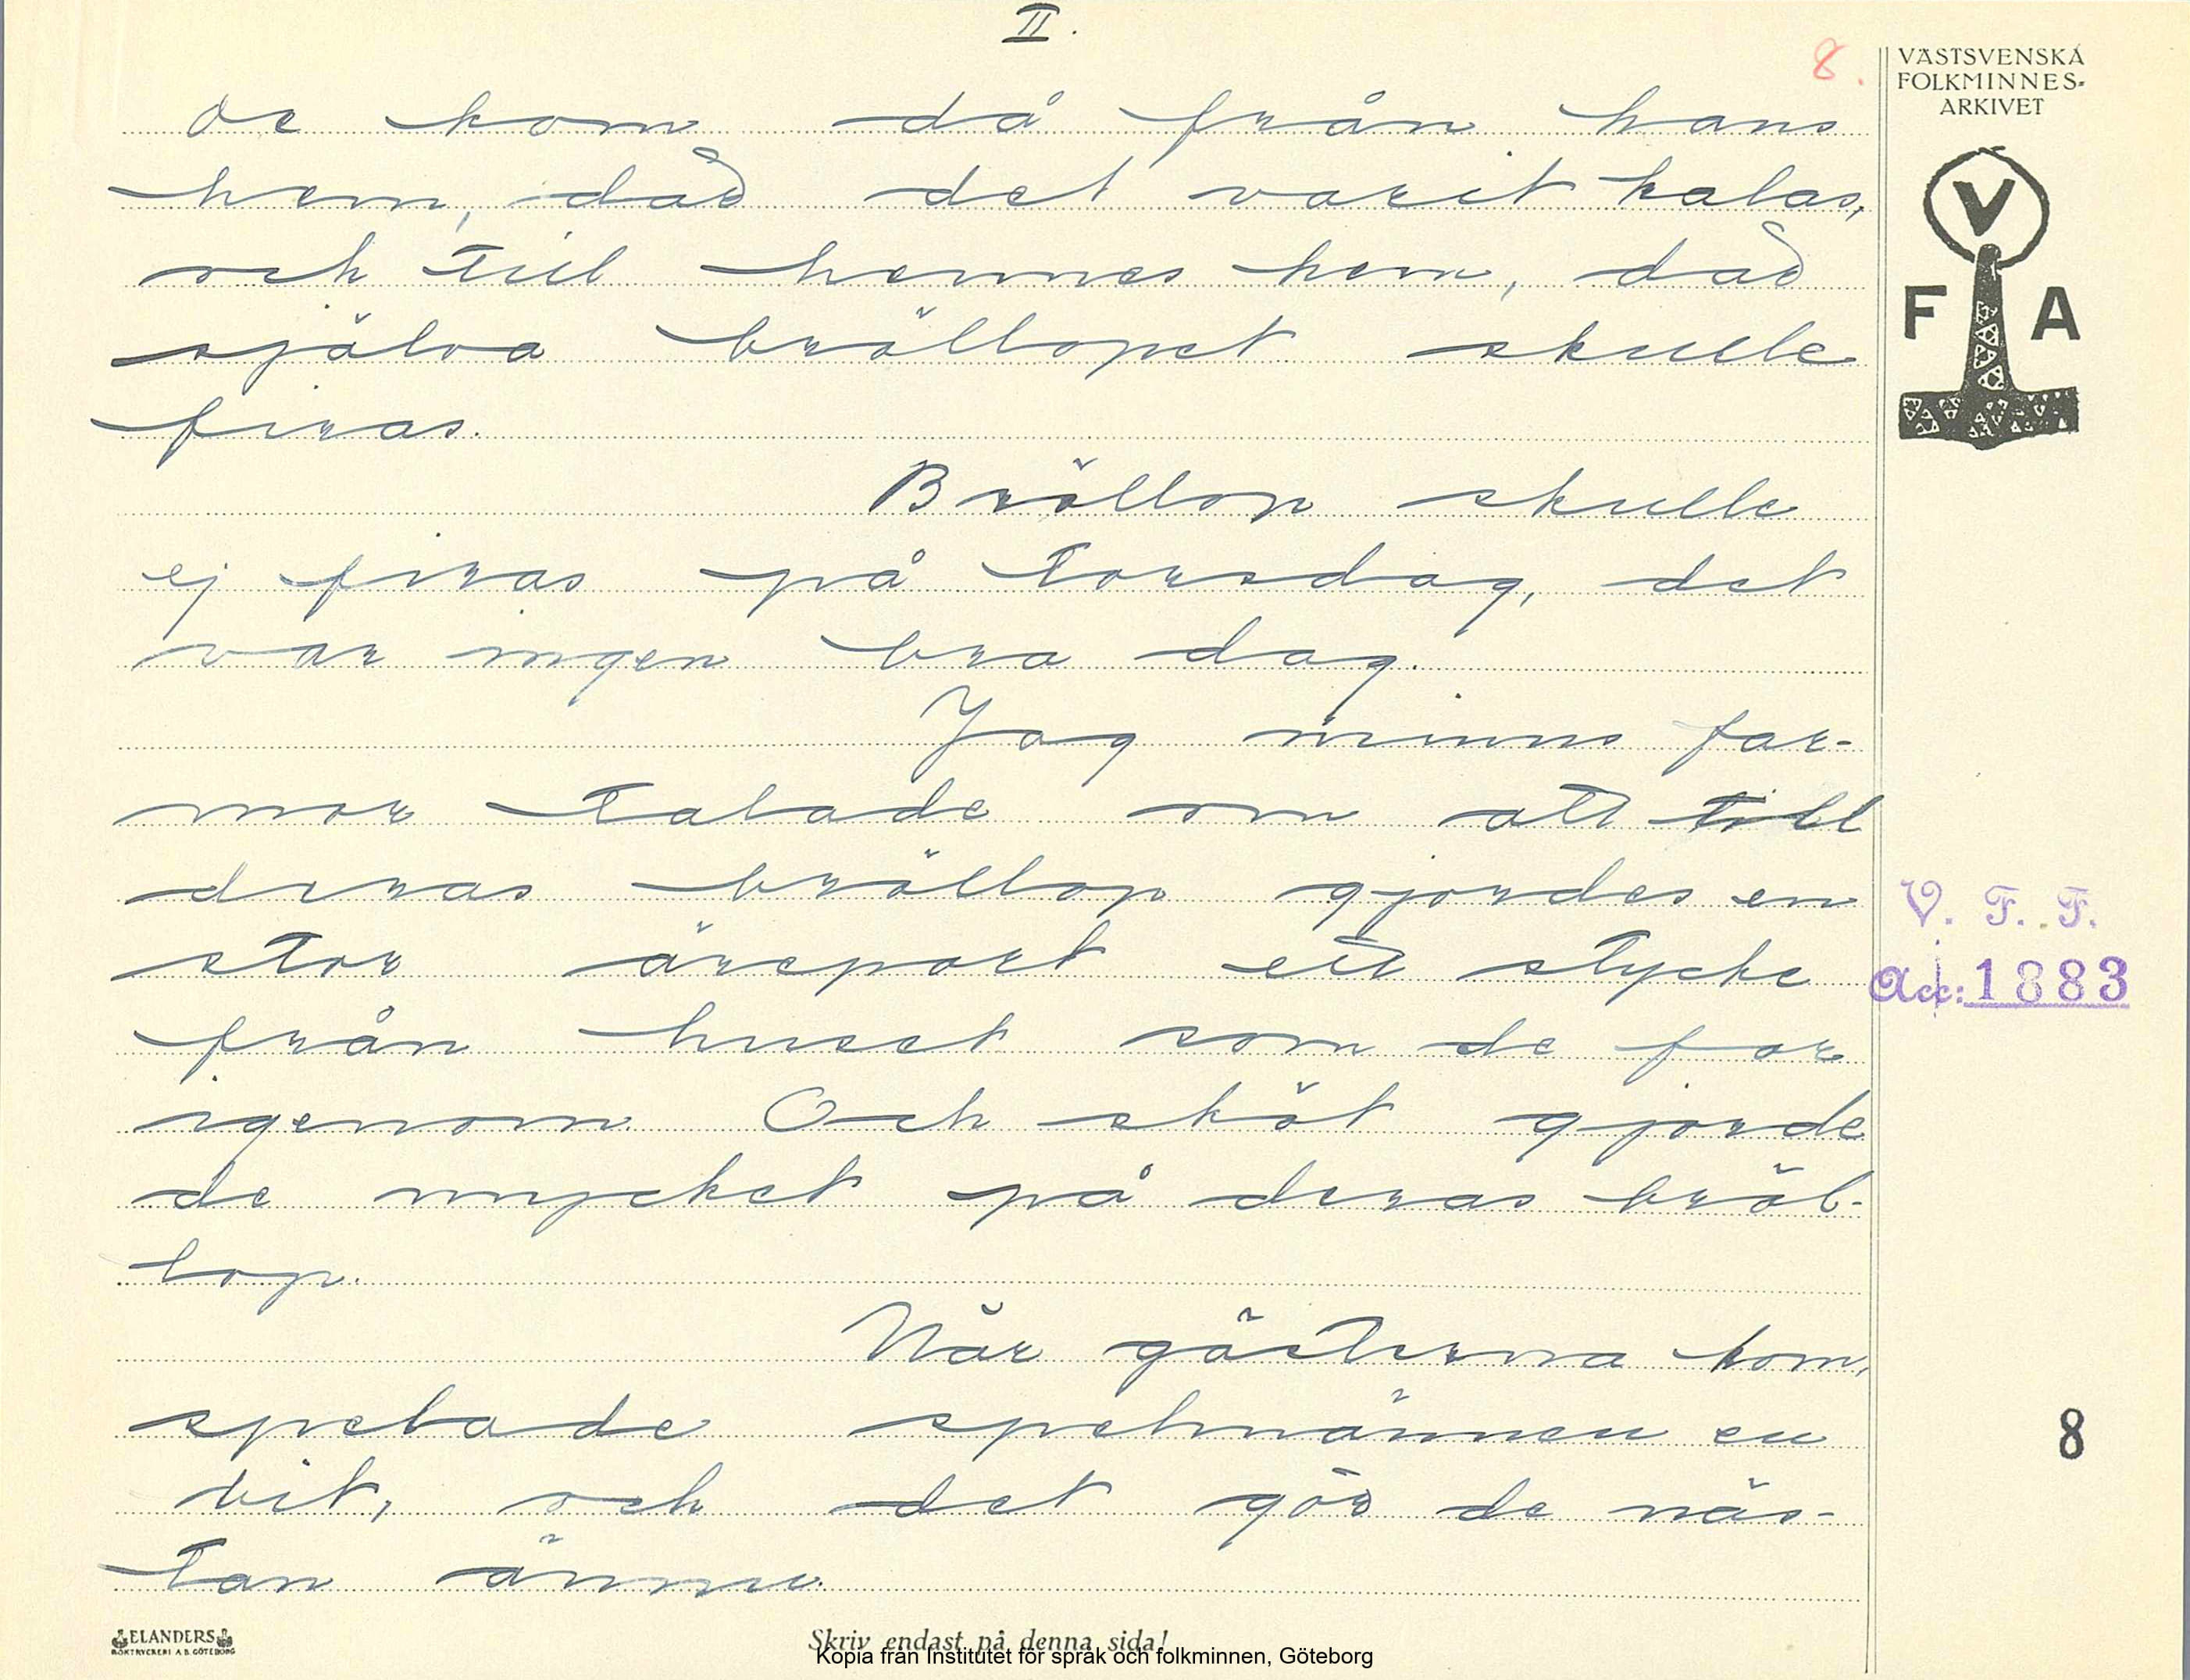 II.
8.
VÄSTSVENSKA
FOLKMINNES-
ARKIVET
V
F A
de kom då från hans
hem, där det varit kalas,
och till hennes hem, där
själva bröllopet skulle
firas.
Bröllop skulle
ej firas på torsdag, det
var ingen bra dag.
Jag minns far-
mor talade om att till
deras bröllop gjordes en
stor äreport ett stycke
från huset som de for
igenom. Och sköt gjorde
de mycket på deras bröl-
lop.
När gästerna kom,
spelade spelmännen en
bit, och det gör de näs-
tan ännu.
V. F. F.
Acc: 1883
8
ELANDERS
BOKTRYCKERI A.B. GÖTEBORG
Skriv endast på denna sida!
Kopia från Institutet för språk och folkminnen, Göteborg